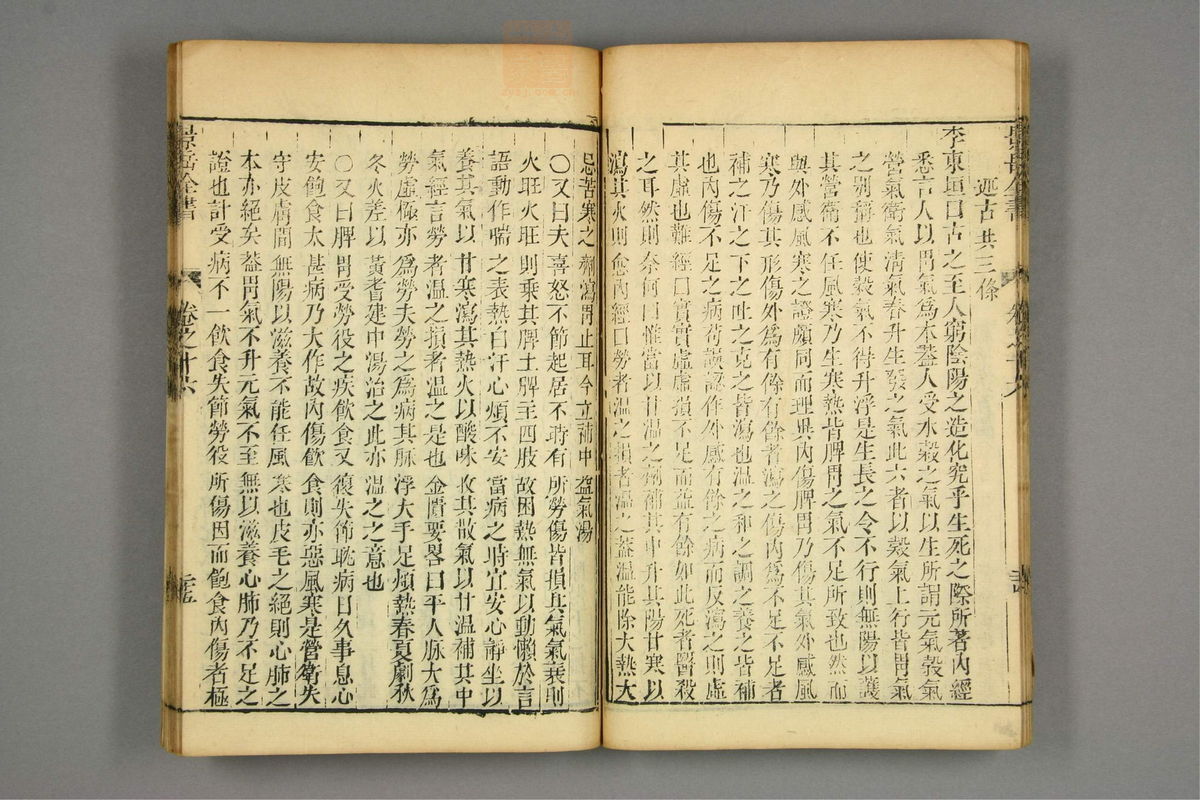 述古共三條
李東垣曰古之至人窮陰陽之造化究乎生死之際所著內經
悉言人以胃氣爲本葢人受水穀之氣以生所謂元氣穀氣
營氣衛氣清氣春升生發之氣此六者以穀氣上行皆胃氣
之別稱也使穀氣不得升浮是生長之令不行則無陽以護
其營衛不任風寒乃生寒熱皆脾胃之氣不足所致也然而
與外感風寒之證頗同而理異內傷脾胃乃傷其氣外感風
寒乃傷其形傷外爲有餘有餘者瀉之傷內爲不足不足者
補之汗之下之吐之克之皆瀉也溫之和之調之養之皆補
也內傷不足之病苟誤認作外感有餘之病而反瀉之則虛
其虛也難經曰實實虛虛損不足而益有餘如此死者醫殺
之耳然則奈何曰惟當以甘溫之劑補其中升其陽甘寒以
瀉其火則愈內經曰勞者溫之損者溫之葢溫能除大熱大
忌苦寒之劑瀉胃止耳今立補中益氣湯
〇又曰夫喜怒不節起居不時有所勞傷皆損其氣氣衰則
火旺火旺則乘其脾土脾主四肢故困熱無氣以動懶於言
語動作喘之表熱自汗心煩不安當病之時宜安心靜坐以
養其氣以甘寒瀉其熱火以酸味收其散氣以甘溫補其中
氣經言勞者溫之損者溫之是也金匱要畧曰平人脉大爲
勞虛極亦爲勞夫勞之爲病其脉浮大手足煩熱春夏劇秋
冬火差以黃耆建中湯治之此亦溫之之意也
〇又曰脾胃受勞役之疾飲食又復失節耽病日久事息心
安飽食太甚病乃大作故內傷飲食則亦惡風寒是營衛失
守皮膚間無陽以滋養不能任風寒也皮毛之絕則心肺之
本亦絕矣葢胃氣不升元氣不至無以滋養心肺乃不足之
證也計受病不一飲食失節勞役所傷因而飽食內傷者極
景岳全書 卷之十六